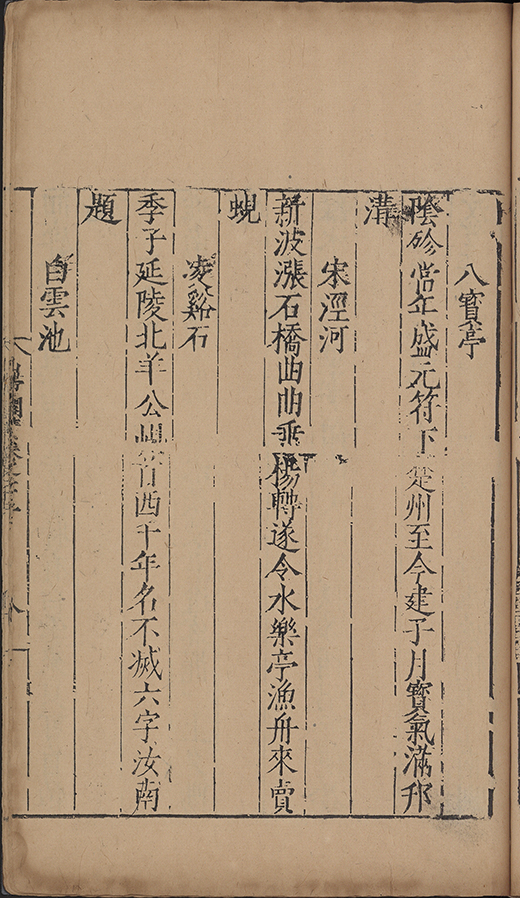 八寶亭
陰沴當年盛元符下楚州至今建子月寶氣滿邗
溝
宋涇河
新波漲石橋曲曲垂楊轉遂令水樂亭漁舟來賣
蜆
凌谿石
季子延陵北羊公峴竹西千年名不滅六字汝南
題
白雲池